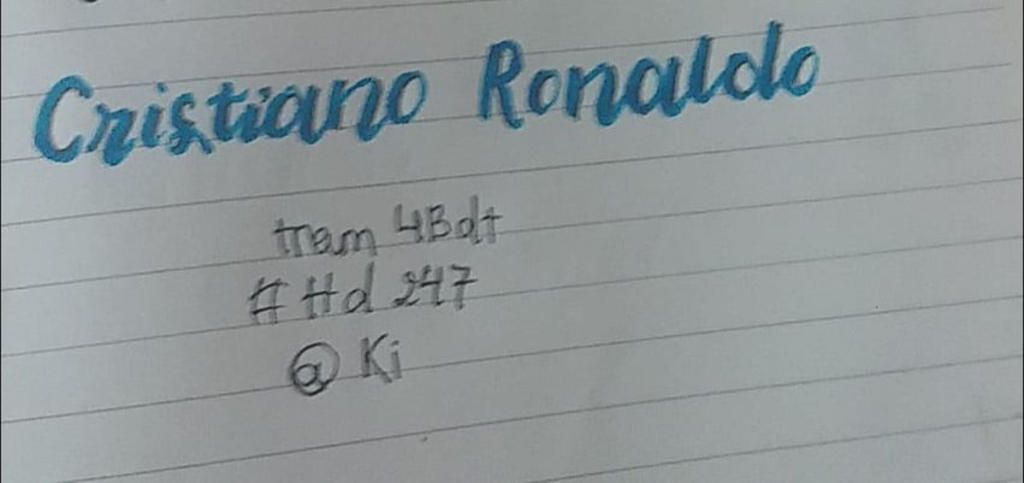 Cristiano Ronaldo
tram 4Bdt
# Hd 247
@ Ki